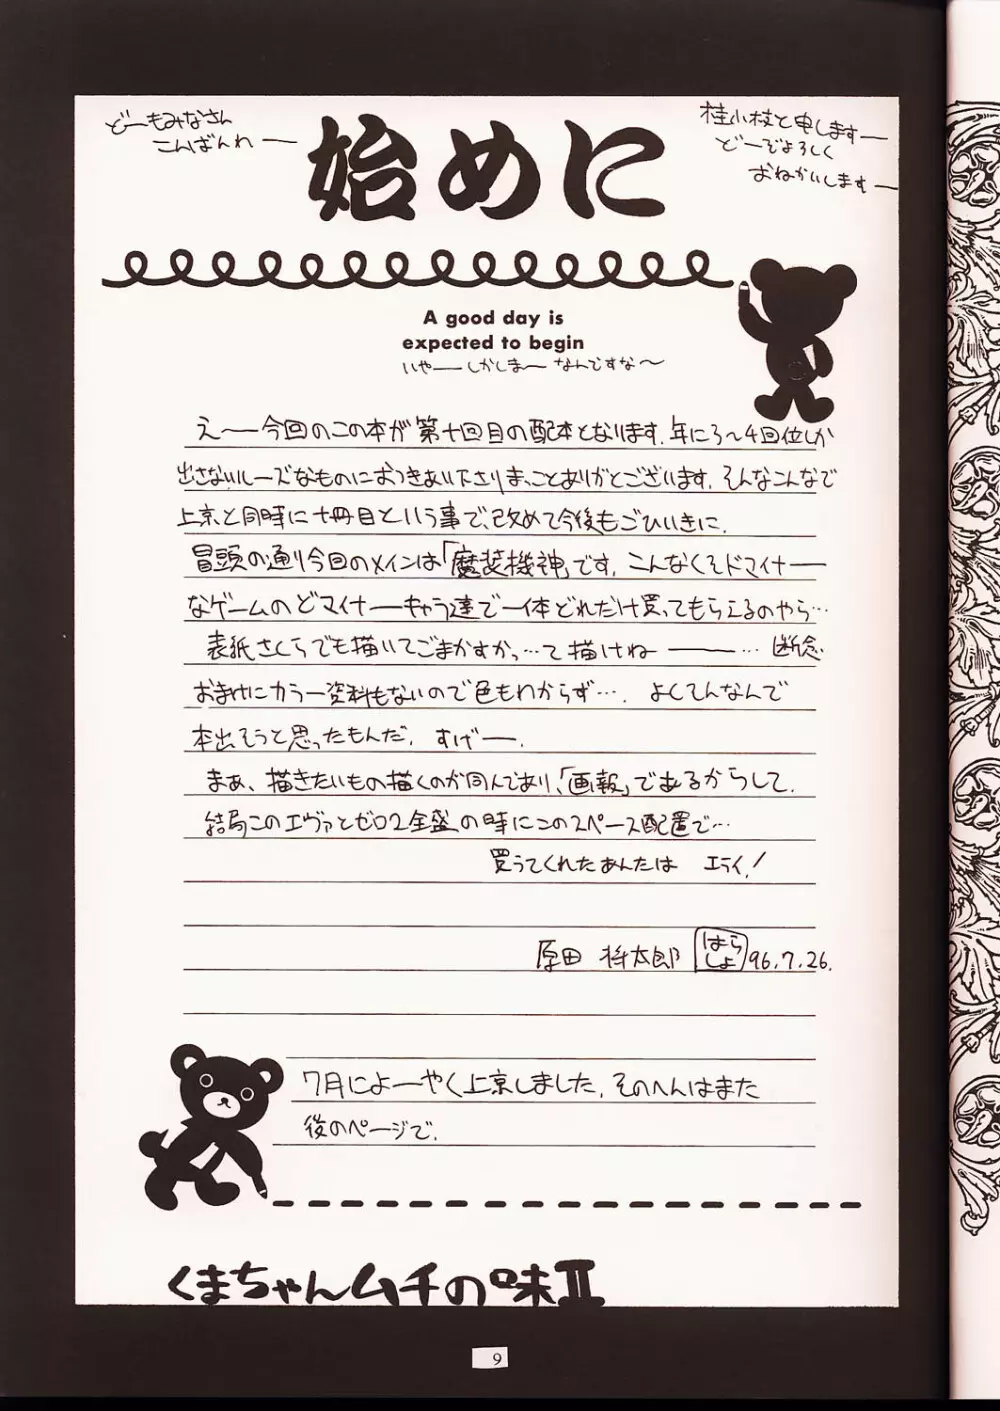 どーもみなさん
こんばんわー
始めに
桂小枝と申しますー
どーぞよろしく
おねがいしますー
A good day is
expected to begin
いやーしかしまー なんですな〜
えー今回のこの本が第十回目の配本となります。年に3〜4回位しか
出さないルーズなものにおつきあい下さりまことにありがとございます。そんなこんなで
上京と同時に十冊目という事で、改めて今後もごひいきに。
冒頭の通り今回のメインは「魔装機神」です。こんなくそドマイナー
なゲームのどマイナーキャラ達で一体どれだけ買ってもらえるのやら…
表紙さくらでも描いてごまかすかっ…て描けねー…断念
おまけにカラー資料もないので色もわからず…。よくてんなんで
本出そうと思ったもんだ。すげー。
まぁ、描きたいもの描くのが同人であり、「画報」であるからして。
結局このエヴァとゼロ2全盛の時にこのスペース配置で…
買うてくれたあんたは エライ!
原田 将太郎 はらしょ 96.7.26.
7月によーやく上京しました。そのへんはまた
後のページで。
くまちゃんムチの味II
9